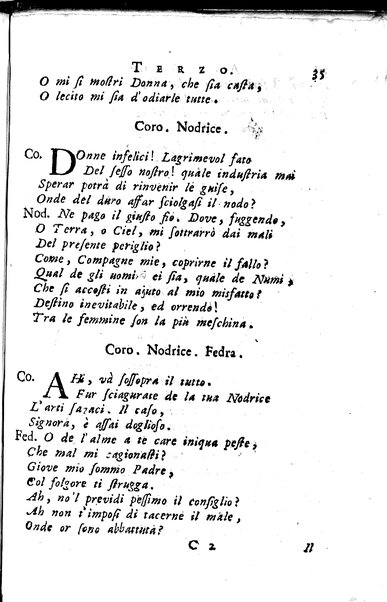 TERZO. 35
O mi ſi moſtri Donna, che ſia caſta,
O lecito mi ſia d'odiarle tutte.
Coro. Nodrice.
Co. DOnne infelici! Lagrimevol fato
Del ſeſſo noſtro! quale induſtria mai
Sperar potrà di rinvenir le guiſe,
Onde del duro affar ſciolgaſi il nodo?
Nod. Ne pago il giuſto fio. Dove, fuggendo,
O Terra, o Ciel, mi ſottrarrò dai mali
Del preſente periglio?
Come, Compagne mie, coprirne il fallo?
Qual de gli uomini ei ſia, quale de Numi,
Che ſi accoſti in ajuto al mio misfatto?
Deſtino inevitabile, ed orrendo!
Tra le femmine ſon la più meſchina.
Coro. Nodrice. Fedra.
Co. AHi, và ſoſſopra il tutto.
Fur ſciagurate de la tua Nodrice
L'arti ſagaci. Il caſo,
Signora, è aſſai doglioſo.
Fed. O de l'alme a te care iniqua peſte,
Che mal mi cagionaſti?
Giove mio ſommo Padre,
Col folgore ti ſtrugga.
Ah, no'l previdi peſſimo il conſiglio?
Ah non t'impoſi di tacerne il male,
Onde or ſono abbattuta?
C 2 Il